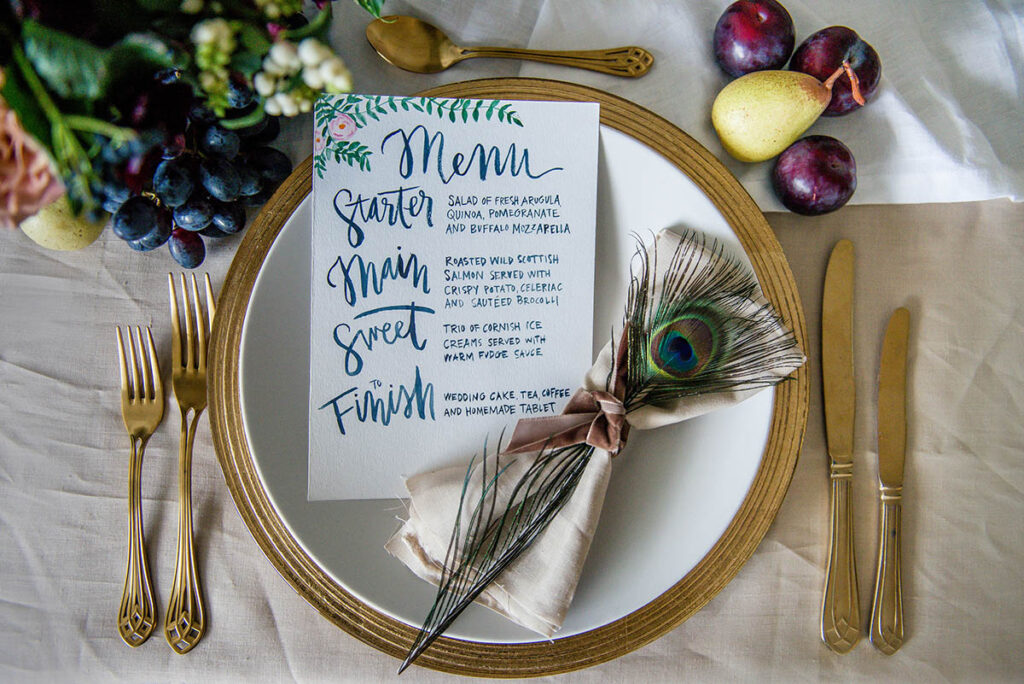 Menu
Starter
SALAD OF FRESH ARUGULA
QUINOA, POMEGRANATE
AND BUFFALO MOZZARELLA
Main
ROASTED WILD SCOTTISH
SALMON SERVED WITH
CRISPY POTATO, CELERIAC
AND SAUTÉED BROCOLLI
Sweet
TRIO OF CORNISH ICE
CREAMS SERVED WITH
WARM FUDGE SAUCE
TO
Finish
WEDDING CAKE, TEA, COFFEE
AND HOMEMADE TABLET